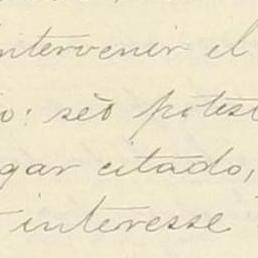 intervenir el
o: sèo potest
gar citado,
interesse